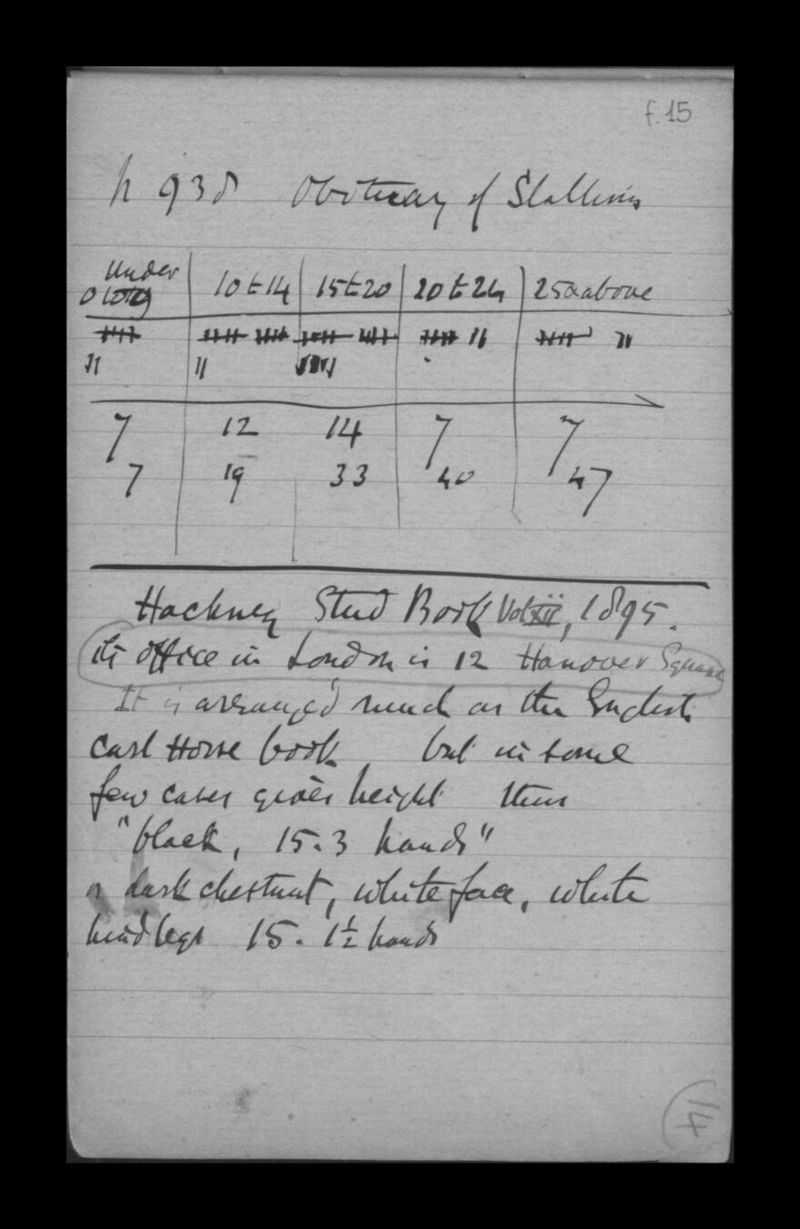 f. 15
h 938 Obituary of Stallions
Under
10 | 10 to 14 | 15 to 20 | 20 to 24 | 25 & above
7 | 12 | 14 | 7 | 7
7 | 19 | 33 | 40 | 47
Hackney Stud Book Vol XII, 1895.
its office in London is 12 Hanover Square
It is arranged much as the English
Cart Horse book but in some
few cases gives height thus
"black, 15.3 hands"
or dark chestnut, white face, white
hind legs 15. 1½ hands
14